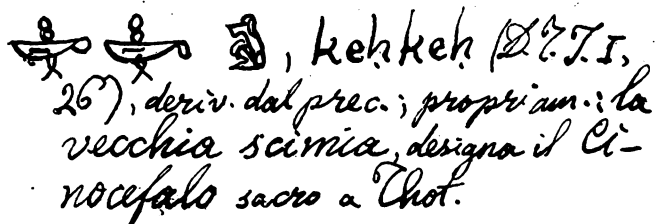 , keḥkeḥ (D.T.T. I,
26), deriv. dal prec.; propriam.: la
vecchia scimia, designa il Ci-
nocefalo sacro a Thot.